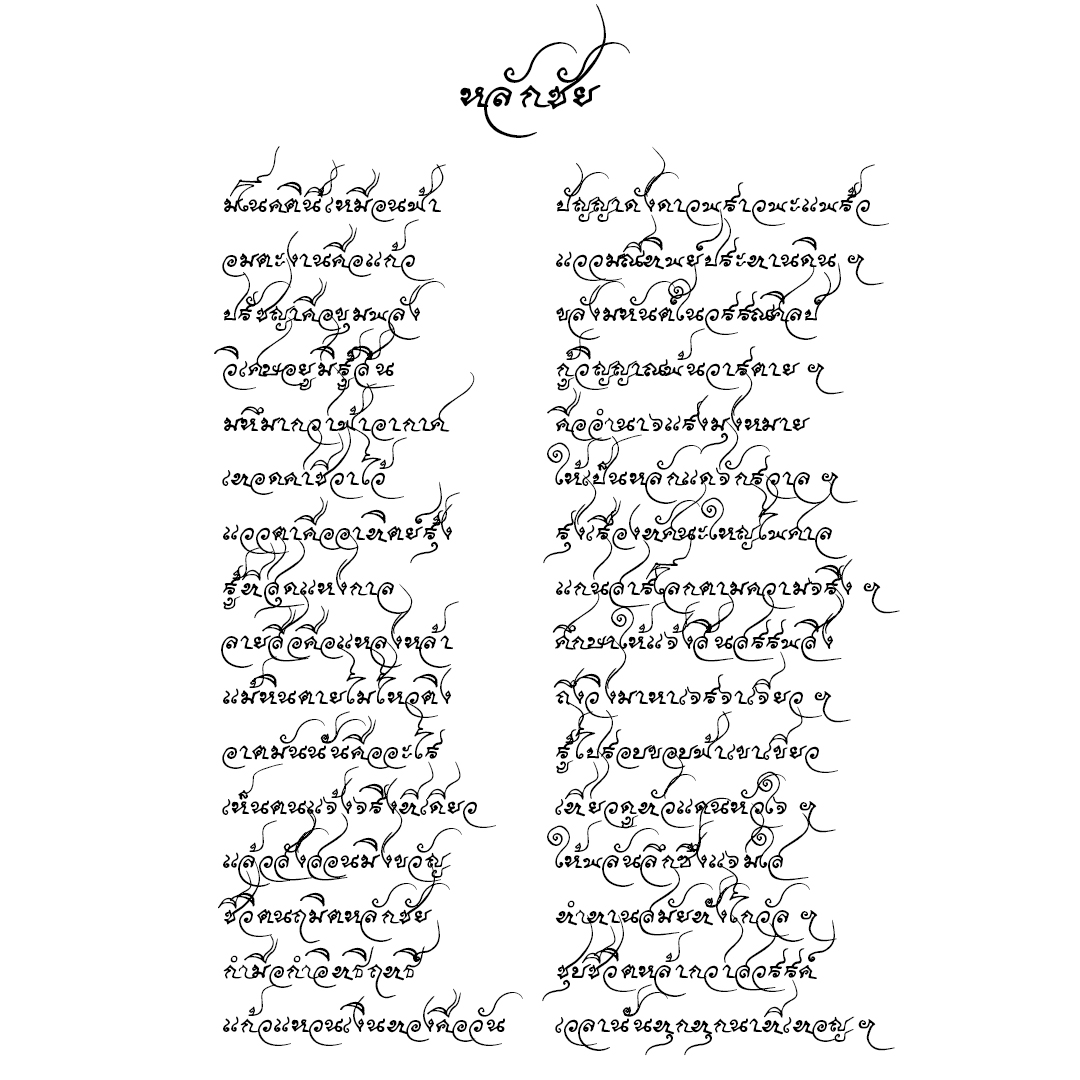 หลักชัย
มโนคตินี้เหมือนฟ้า ปัญญาดั่งดาวพราวพะแพร้ว
อมตะงานคือแก้ว แววมณีทิพย์ประทานดิน ฯ
ปรัชญาคือขุมพลัง ขลังมหันต์ในวรรณศิลป์
วิเศษอยู่มิรู้สิ้น กู้วิญญาณพ้นวารตาย ฯ
มหึมากว่าฟ้าอากาศ คืออำนาจแรงมุ่งหมาย
เทอดค่าชีวาไว้ ให้เป็นหลักแด่จักรวาล ฯ
แววตาคืออาทิตย์รุ้ง รุ่งเรืองทัศนะใหญ่ไพศาล
รู้ที่สุดแห่งกาล แก่นสารโลกตามความจริง ฯ
ลายสือคือแหล่งหล้า ศึกษาให้แจ้งสิ้นสรรพสิ่ง
แม้หินตายไม่ไหวติง ถึงวิ่งมาหาเจรจาเจียว ฯ
อาตมันนั้นคืออะไร รู้ไปรอบขอบฟ้าเขาเขียว
เห็นตนแจ้งจริงทีเดียว เที่ยวดูทั่วแดนหัวใจ ฯ
แล้วสั่งสอนมิ่งขวัญ ให้พลันลึกซึ้งแจ่มใส
ชีวิตนฤมิตหลักชัย ทำทานสมัยทั้งไกวัล ฯ
กำมือกำอิทธิฤทธิ์ ชุบชีวิตหล้ากว่าสวรรค์
แก้วแหวนเงินทองคือวัน เวลานั้นทุกทุกนาทีเทอญ ฯ